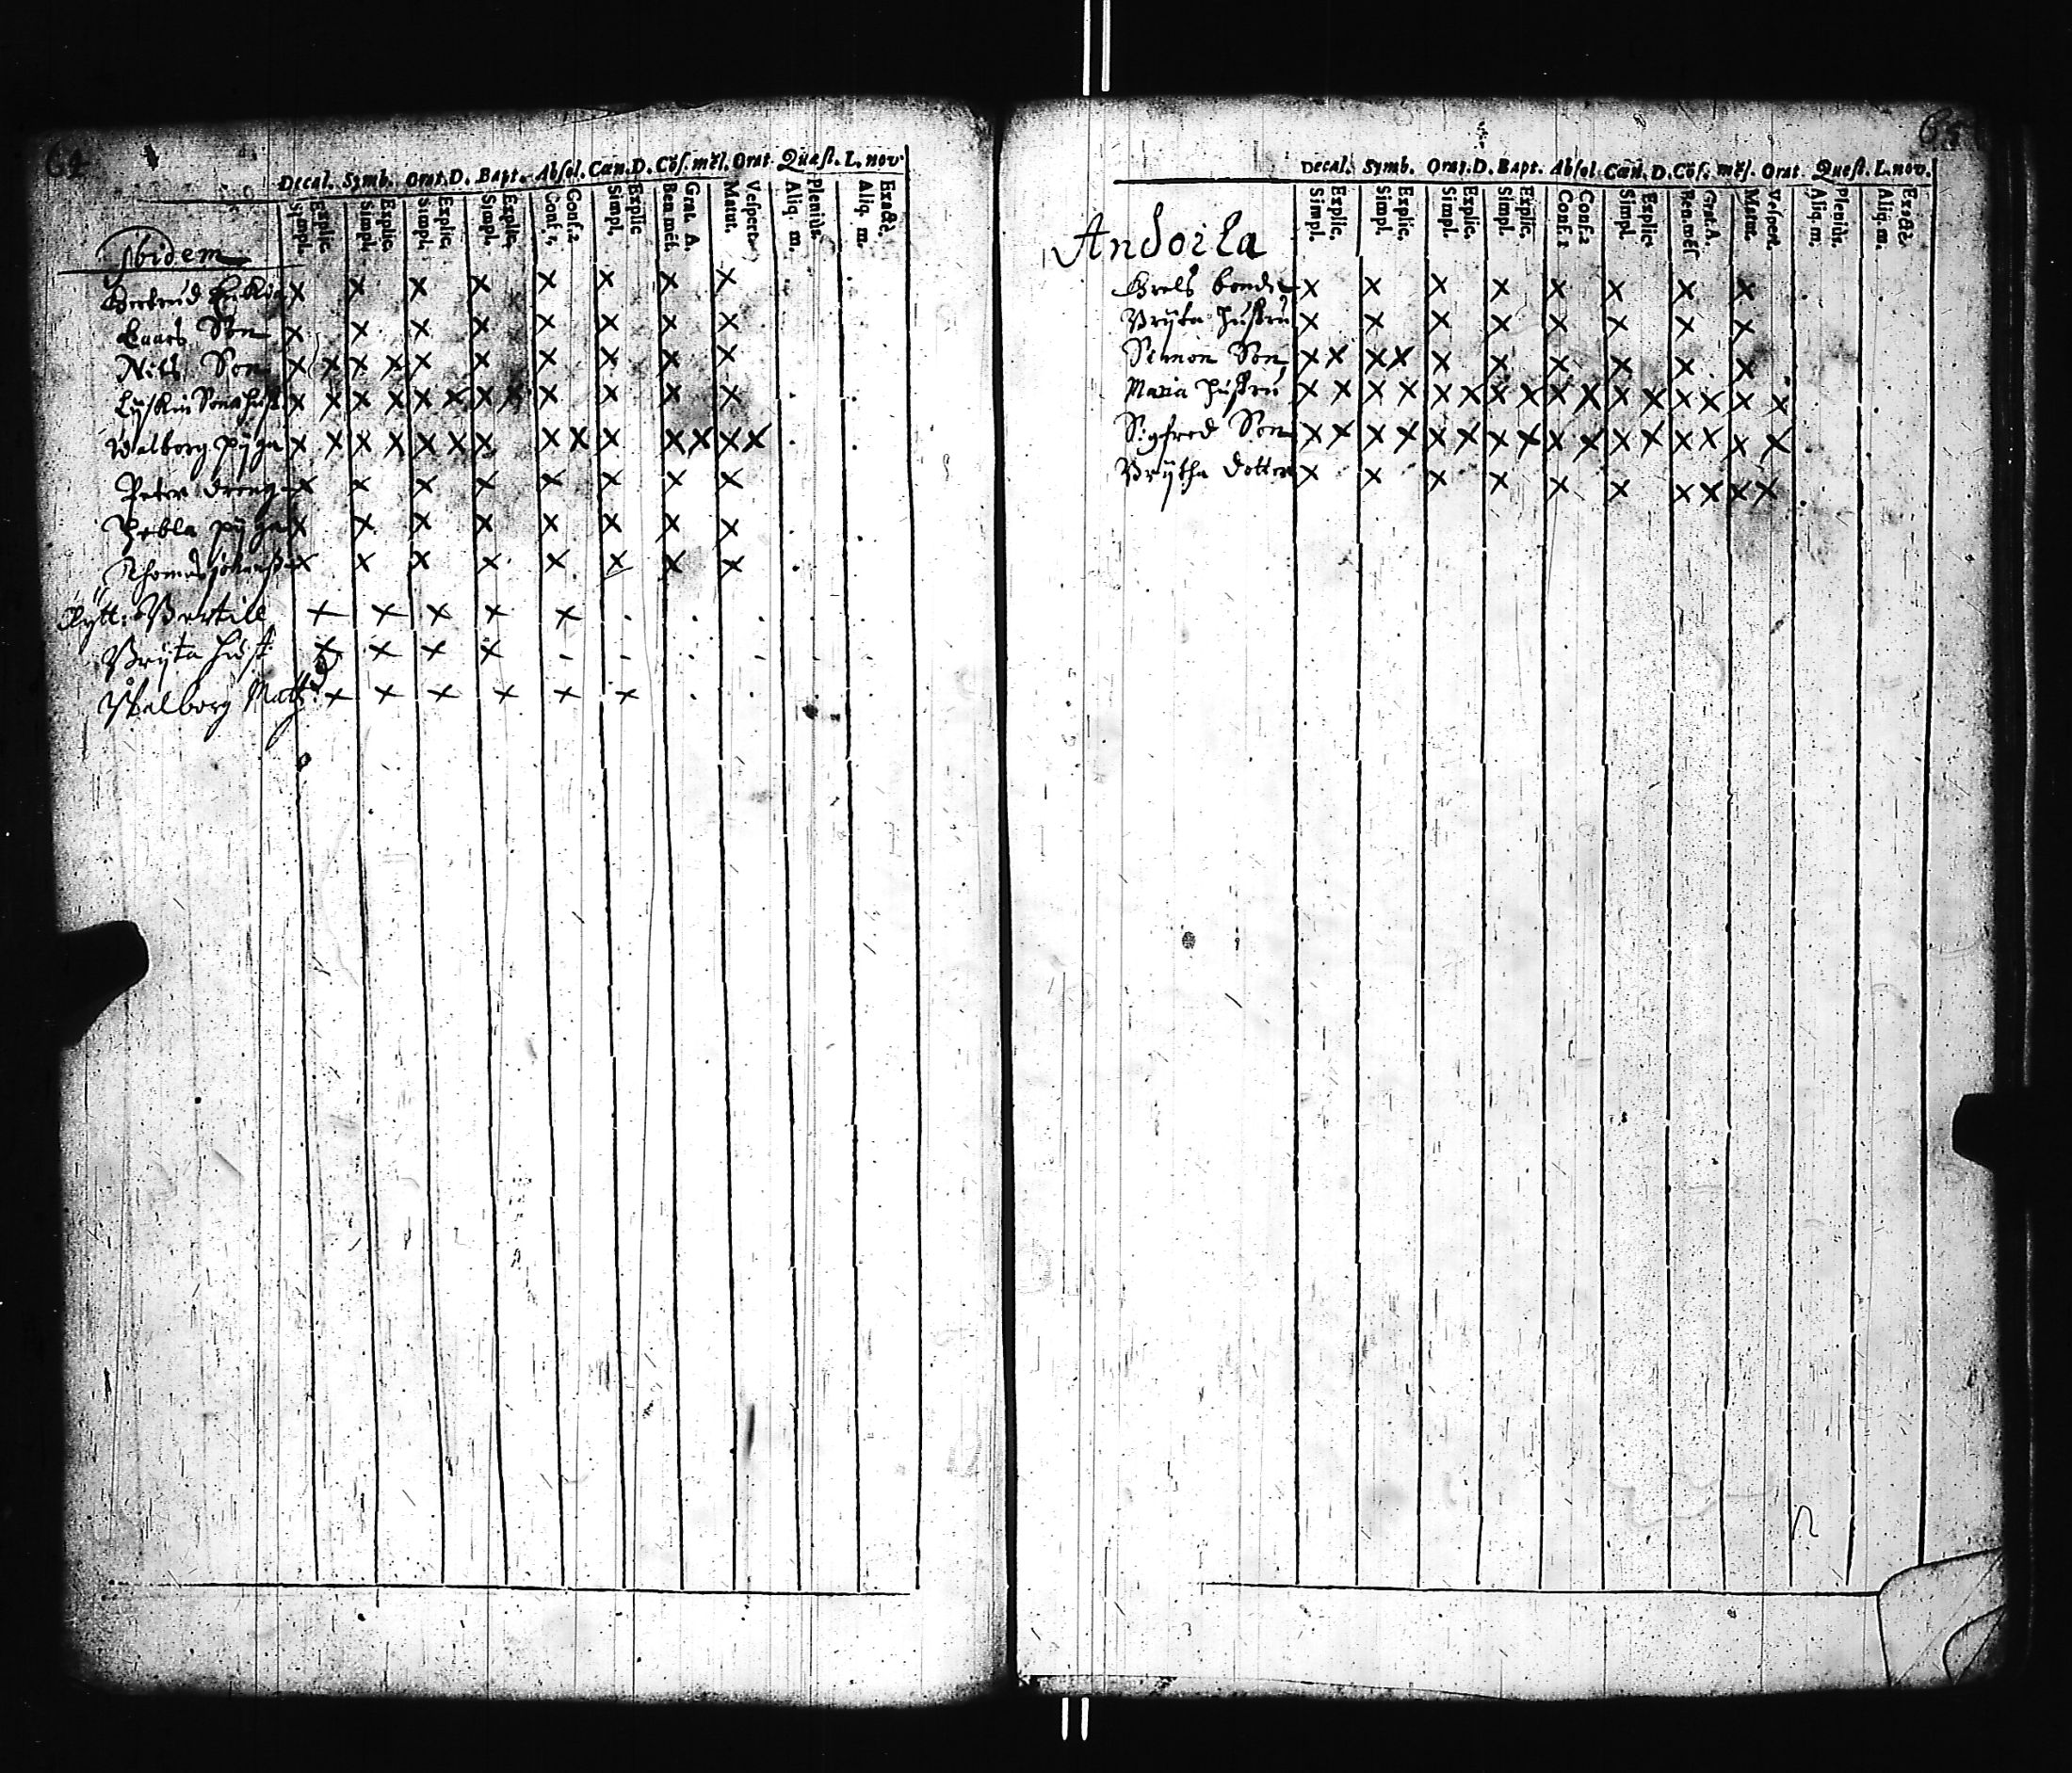 64
Decal. Symb. Orat. D. Bapt. Absol. Cœn. D. Cõf. mẽſ. Orat. Quæſt. L. nov.
Simpl. Explic. Simpl. Explic. Simpl. Explic. Simpl. Explic. Conf. 1. Conf. 2 Simpl. Explic Ben. mẽſ. Grat. A. Matut. Veſpert. Aliq. m. Plenius. Aliq. m. Exactè.
Ibidem
Gertrud Enkia x x x x x x x x
Laars Son x x x x x x x x
Nils Son x x x x x x x x x x
Lijsken Sons hust x x x x x x x x x x x x
Walborg pijga x x x x x x x x x x x x x x
Peter dreng x x x x x x x x
pijga x x x x x x x x
Thomas x x x x x x x x
Bertill x x x x x
Brijta hust x x x x
Walborg Matts x x x x x x
65
Decal. Symb. Orat. D. Bapt. Absol. Cœn. D. Cõf. mẽſ. Orat. Quæſt. L. nov.
Simpl. Explic. Simpl. Explic. Simpl. Explic. Simpl. Explic. Conf. 1 Conf. 2 Simpl. Explic Ben. mẽſ Grat. A. Matut. Veſpert. Aliq. m. Plenius. Aliq. m. Exactè.
Andoila
Grels bonde x x x x x x x x
Brijta hustru x x x x x x x x
Simon Son x x x x x x x x x x
Maria hustru x x x x x x x x x x x x x x x x
Sigfred Son x x x x x x x x x x x x x x x x
Brijtha dotter x x x x x x x x x x